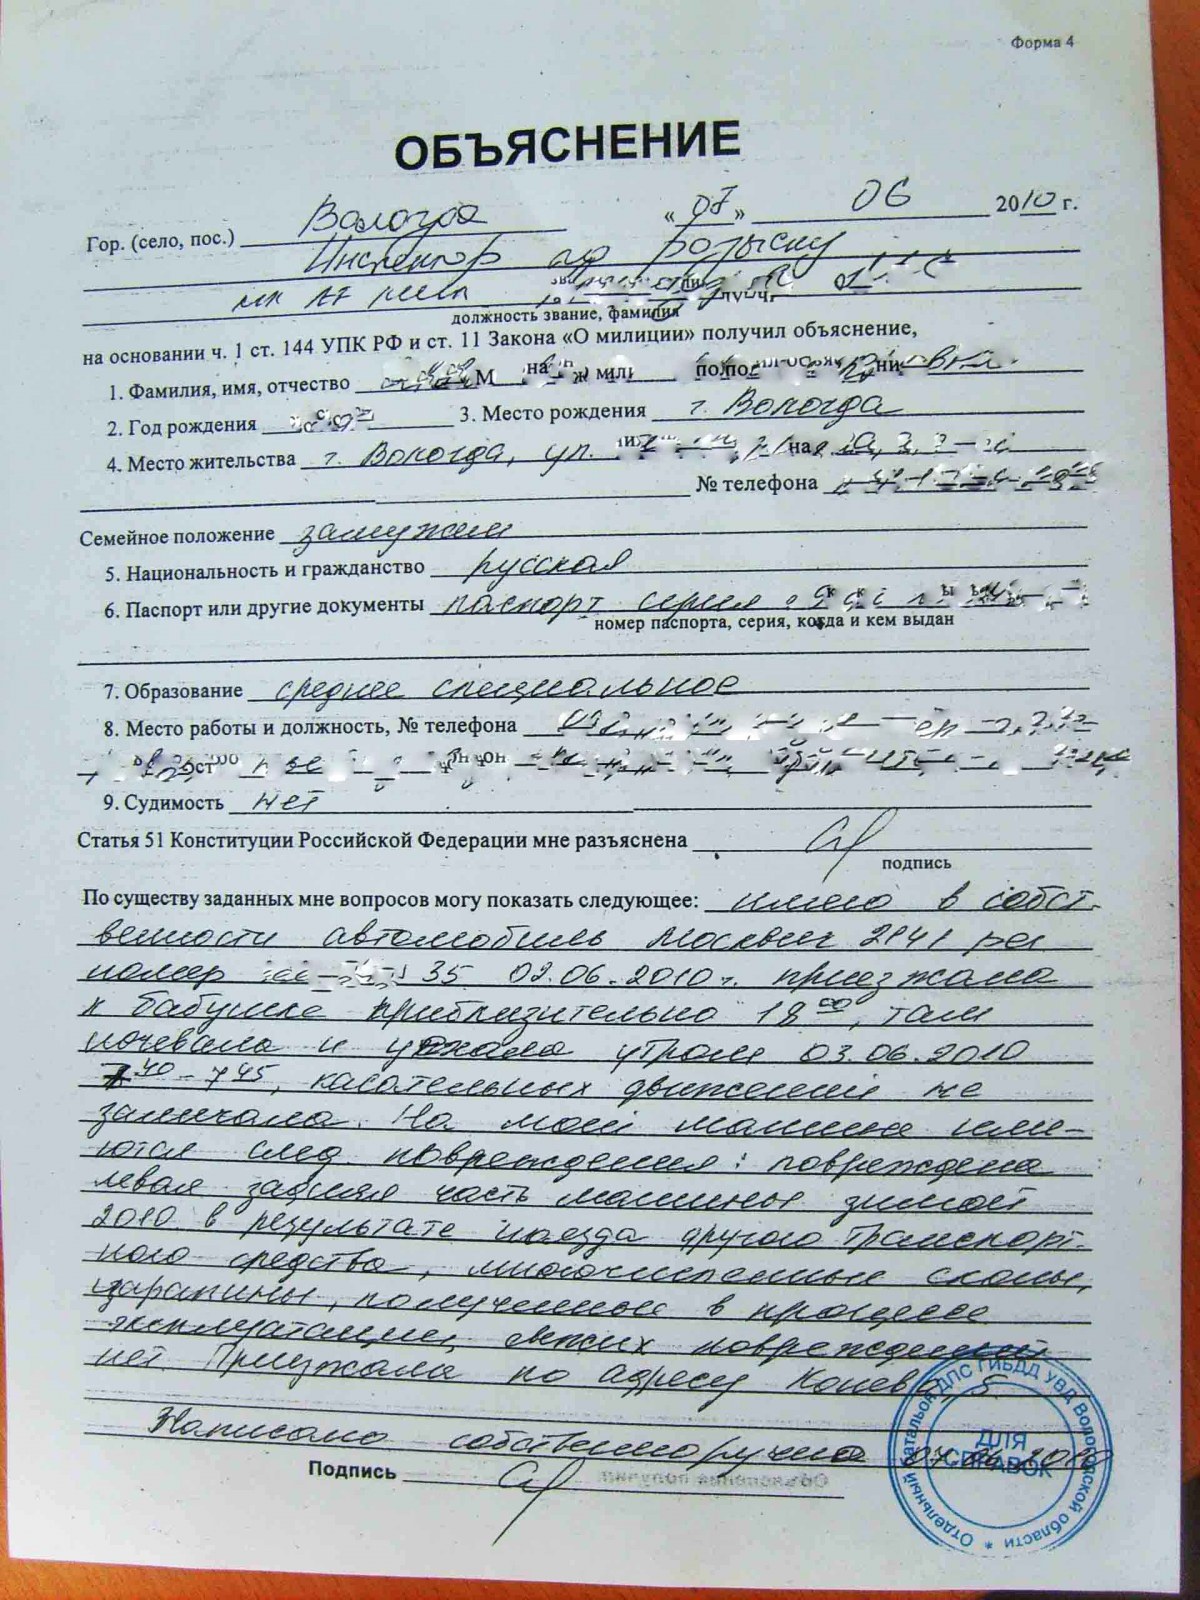 Форма 4
ОБЪЯСНЕНИЕ
Гор. (село, пос.) Вологда « 07 » 06 2010 г.
Инспектор по розыску
должность звание, фамилия
на основании ч. 1 ст. 144 УПК РФ и ст. 11 Закона «О милиции» получил объяснение,
1. Фамилия, имя, отчество
2. Год рождения 3. Место рождения г. Вологда
4. Место жительства г. Вологда, ул.
№ телефона
Семейное положение замужем
5. Национальность и гражданство русская
6. Паспорт или другие документы паспорт серия
номер паспорта, серия, когда и кем выдан
7. Образование среднее специальное
8. Место работы и должность, № телефона
9. Судимость нет
Статья 51 Конституции Российской Федерации мне разъяснена
подпись
По существу заданных мне вопросов могу показать следующее: имею в собст-
венности автомобиль Москвич 2141 рег
номер 35 02.06.2010г. приезжала
к бабушке приблизительно 18 00, там
ночевала и уехала утром 03.06.2010
7 40 - 7 45, касательных движений не
замечала. На моей машине име-
ются след. повреждения: повреждена
левая задняя часть машины зимой
2010 в результате наезда другого транспорт-
ного средства, многочисленные сколы,
царапины, полученные в процессе
эксплуатации, свежих повреждений
нет. Приезжала по адресу Конева, 5.
Написано собственноручно 07.06.2010
Подпись
Отдельный батальон ДПС ГИБДД УВД Вологодской области *
ДЛЯ
СПРАВОК